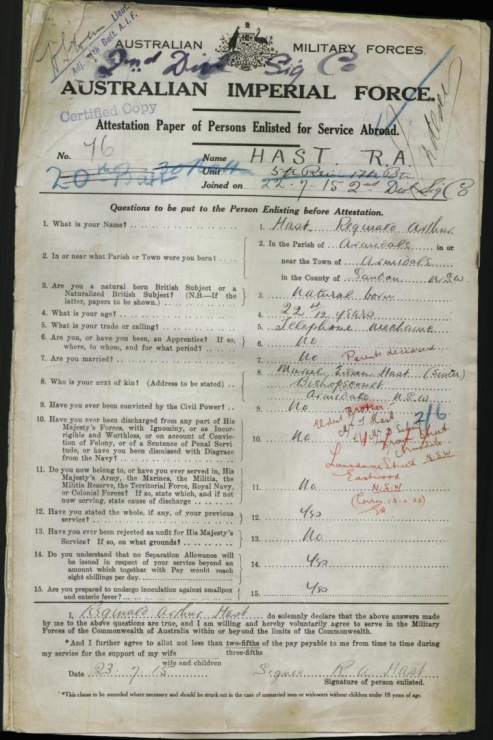 Lieut
Adj. Batt. A.I.F.
AUSTRALIAN MILITARY FORCES.
2nd Div Sig Co
AUSTRALIAN IMPERIAL FORCE.
Certified Copy
Attestation Paper of Persons Enlisted for Service Abroad.
No. 76 Name HAST. R.A.
20th Batt Unit
Joined on 22.7.15 2nd Div Sig Co
Questions to be put to the Person Enlisting before Attestation.
1. What is your Name? 1. Hast Reginald Arthur
2. In or near what Parish or Town were you born? 2. In the Parish of Armidale in or
near the Town of Armidale
in the County of N.S.W
3. Are you a natural born British Subject or a
Naturalized British Subject? (N.B.—If the
latter, papers to be shown.) 3. Natural born
4. What is your age? 4. 22 years
5. What is your trade or calling? 5. Telephone Mechanic
6. Are you, or have you been, an Apprentice? If so,
where, to whom, and for what period? 6. No
7. Are you married? 7. No Parents deceased
8. Who is your next of kin? (Address to be stated) 8. Hast (Sister)
Bishopscourt
Armidale N.S.W
9. Have you ever been convicted by the Civil Power? 9. No
Brother
10. Have you ever been discharged from any part of His
Majesty's Forces, with Ignominy, or as Incor-
rigible and Worthless, or on account of Convic-
tion of Felony, or of a Sentence of Penal Servi-
tude, or have you been dismissed with Disgrace
from the Navy? 10. No
Hast
Street
Armidale
N.S.W
Lansdowne Street
Eastwood
N.S.W
11. Do you now belong to, or have you ever served in, His
Majesty's Army, the Marines, the Militia, the
Militia Reserve, the Territorial Force, Royal Navy,
or Colonial Forces? If so, state which, and if not
now serving, state cause of discharge 11. No
12. Have you stated the whole, if any, of your previous
service? 12. Yes
13. Have you ever been rejected as unfit for His Majesty's
Service? If so, on what grounds? 13. No
14. Do you understand that no Separation Allowance will
be issued in respect of your service beyond an
amount which together with Pay would reach
eight shillings per day 14. Yes
15. Are you prepared to undergo inoculation against smallpox
and enteric fever? 15. Yes
I, Reginald Arthur Hast do solemnly declare that the above answers
made by me to the above questions are true, and I am willing and hereby voluntarily agree to serve in the Military
Forces of the Commonwealth of Australia within or beyond the limits of the Commonwealth.
*And I further agree to allot not less than two-fifths of the pay payable to me from time to time during
three-fifths
my service for the support of my wife
wife and children
Date 23.7.15 Signed R A Hast
Signature of person enlisted.
*This clause to be amended where necessary and should be struck out in the case of unmarried men or widowers without children under 18 years of age.